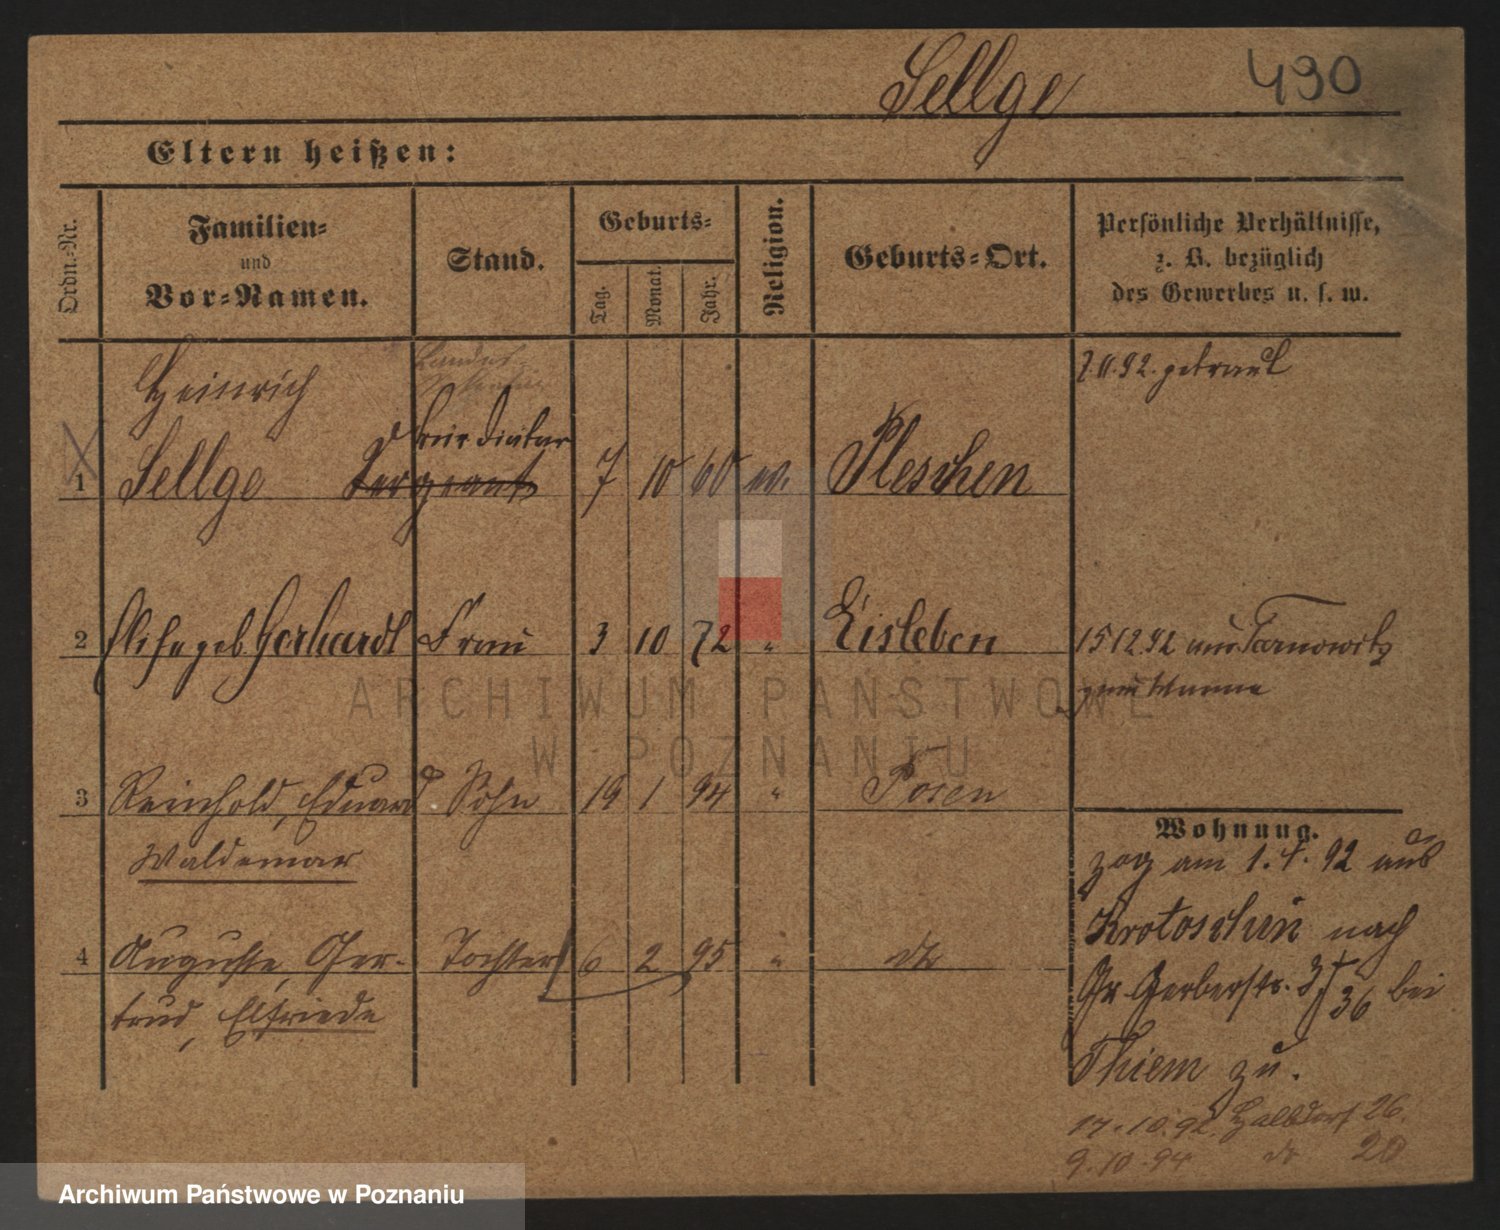 Sellge 490
Eltern heißen:
Ordn.-Nr.
Familien-
und
Vor-Namen.
Stand.
Geburts-
Tag.
Monat.
Jahr.
Religion.
Geburts-Ort.
Persönliche Verhältnisse,
z. B. bezüglich
des Gewerbes u. s. w.
Heinrich
Landes
1 Sellge Sergeant 7 10 60 ev. Pleschen
getraut
2 geb. Gerhardt Frau 3 10 72 " Eisleben
15 12 92 aus Tarnowitz
3 Reinhold, Eduard Sohn 19 1 94 " Posen
Waldemar
4 Auguste, Ger- Tochter 6 2 95 " do
trud, Elfriede
Wohnung.
zog am 1. 4. 92 aus
Krotoschin nach
Gr. Gerberstr. 36 bei
Thiem zu.
17.10.92. Halbdorf 26.
9.10.94 do 20
ARCHIWUM PAŃSTWOWE
W POZNANIU
Archiwum Państwowe w Poznaniu